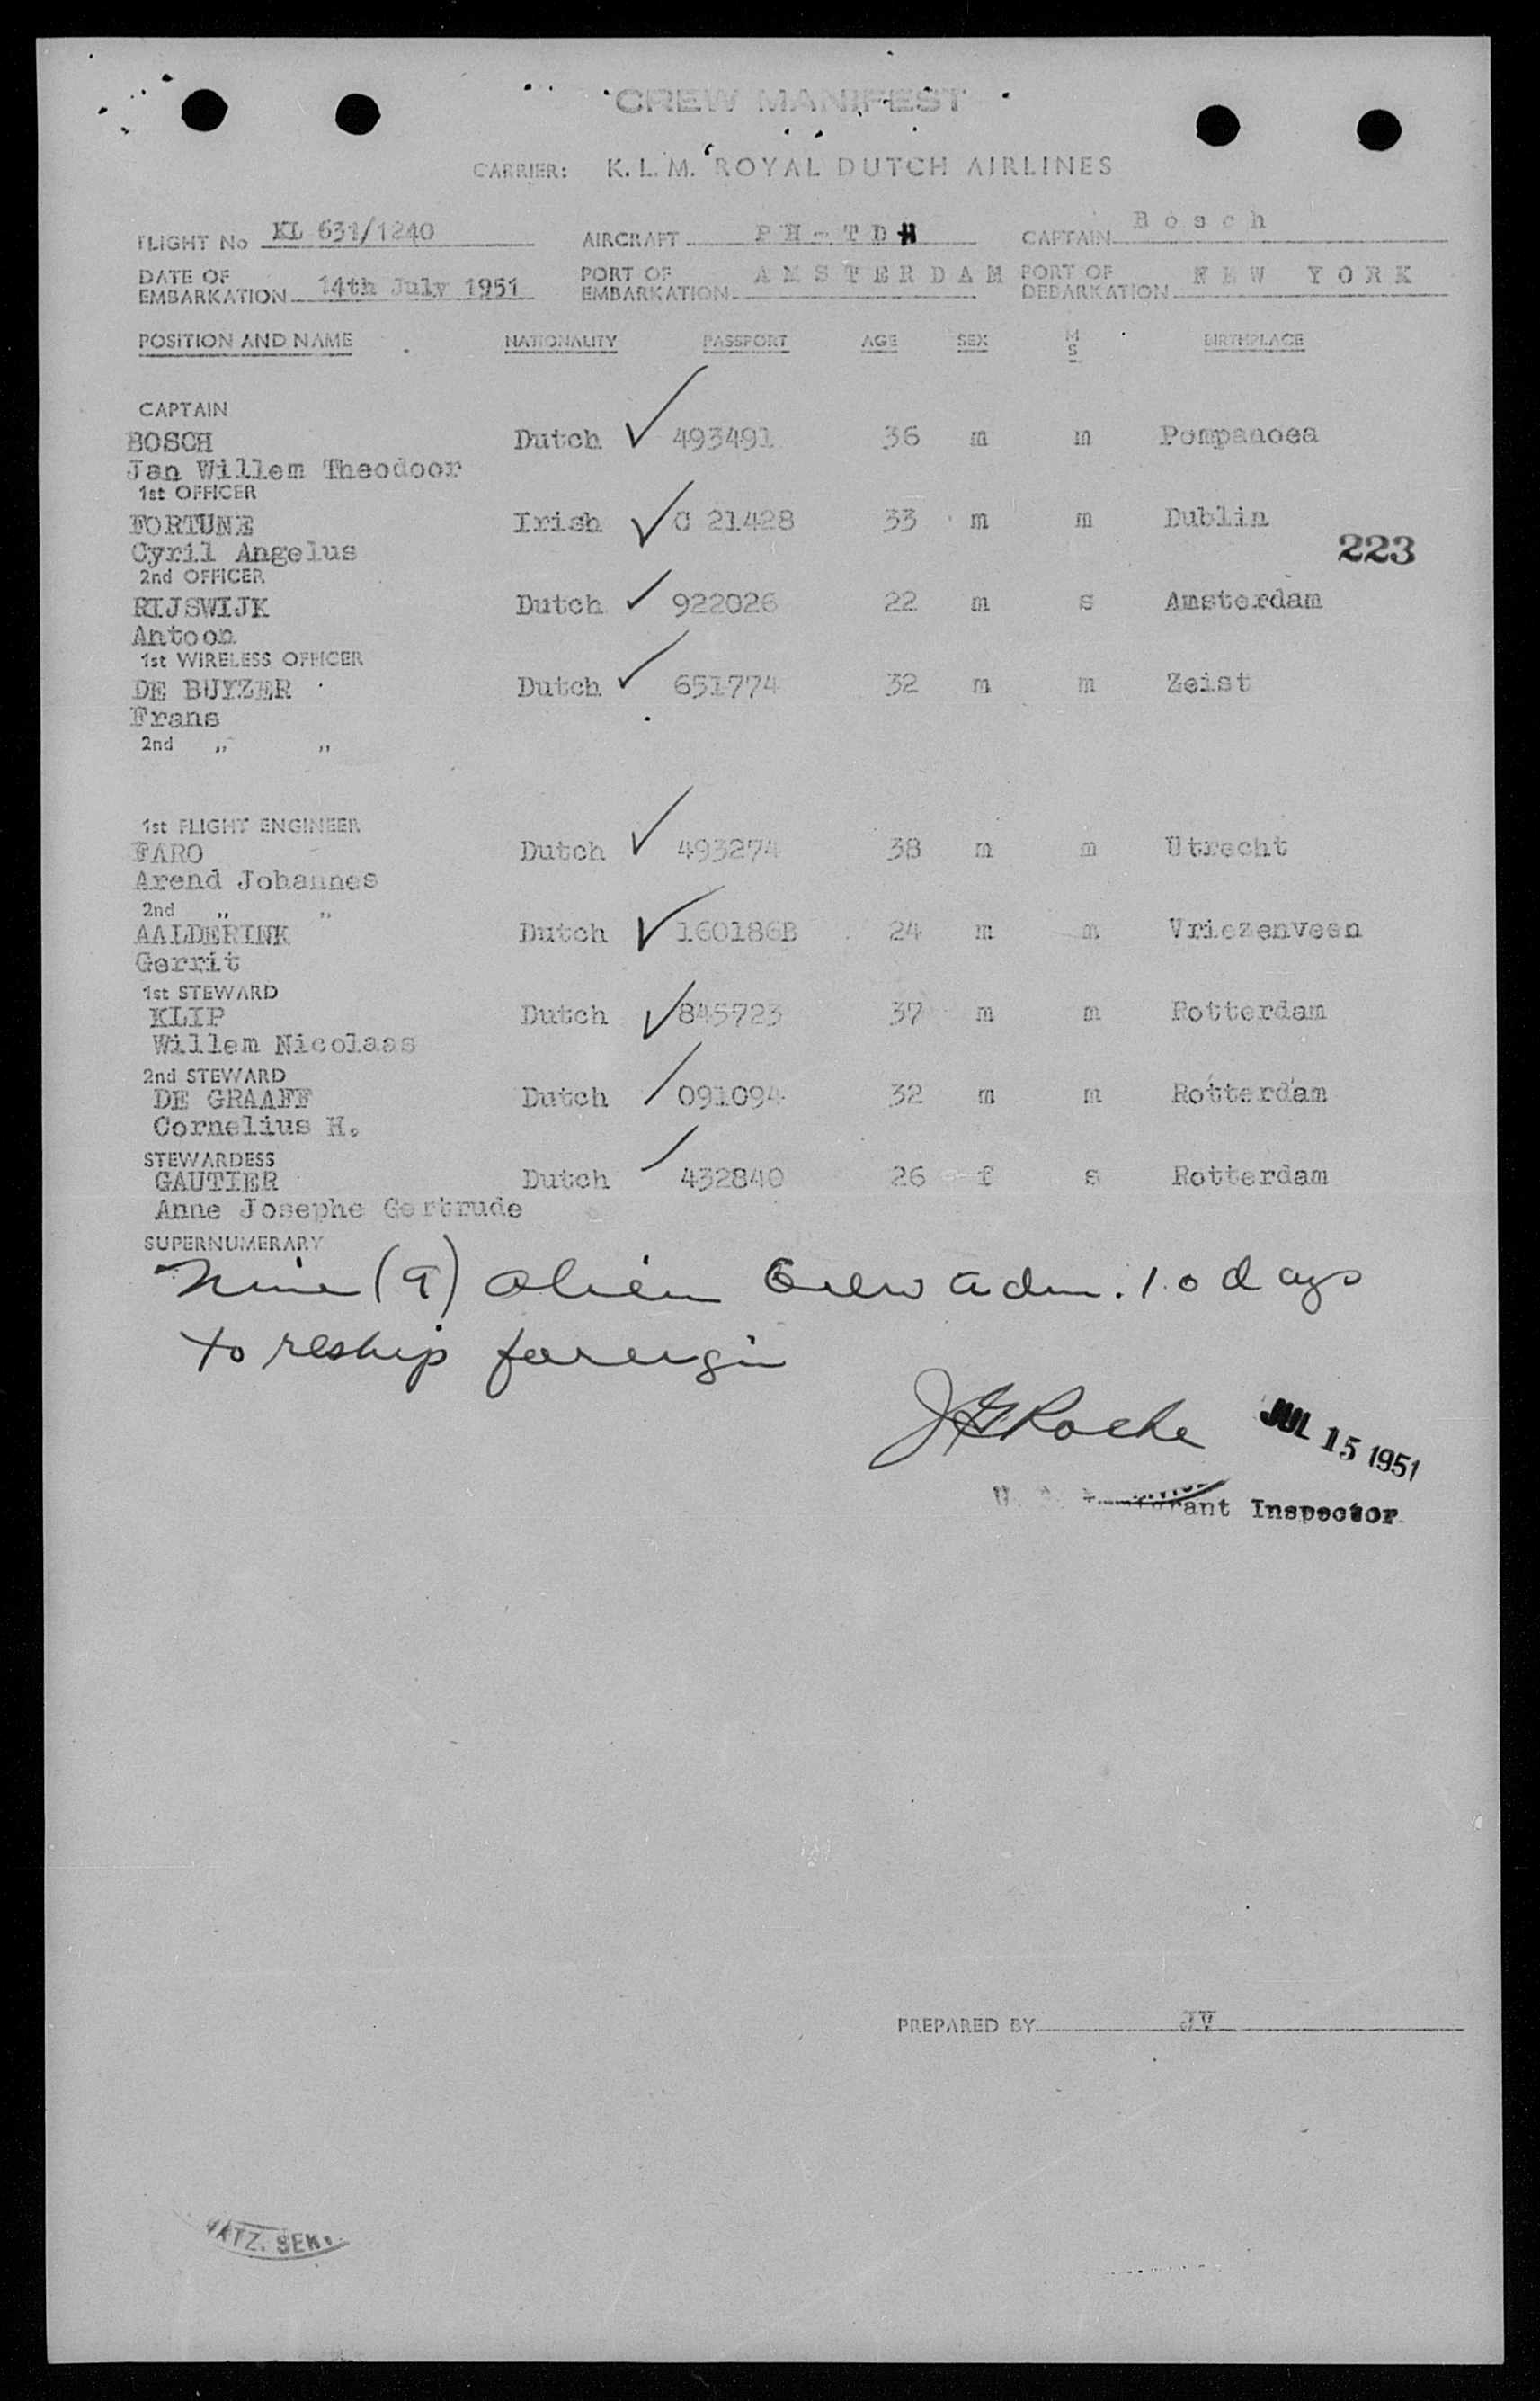 CREW MANIFEST
CARRIER: K.L.M. ROYAL DUTCH AIRLINES
FLIGHT No KL 631/1240 AIRCRAFT PH-TDH CAPTAIN Bosch
DATE OF EMBARKATION 14th July 1951 PORT OF EMBARKATION AMSTERDAM PORT OF DEBARKATION NEW YORK
POSITION AND NAME NATIONALITY PASSPORT AGE SEX M S BIRTHPLACE
CAPTAIN
BOSCH Dutch 493491 36 m m Pompanoea
Jan Willem Theodoor
1st OFFICER
FORTUNE Irish C 21428 33 m m Dublin
Cyril Angelus
223
2nd OFFICER
RIJSWIJK Dutch 922026 22 m s Amsterdam
Antoon
1st WIRELESS OFFICER
DE BUYZER Dutch 651774 32 m m Zeist
Frans
2nd " "
1st FLIGHT ENGINEER
FARO Dutch 493274 38 m m Utrecht
Arend Johannes
2nd " "
AALDERINK Dutch 160186B 24 m m Vriezenveen
Gerrit
1st STEWARD
KLIP Dutch 845723 37 m m Rotterdam
Willem Nicolaas
2nd STEWARD
DE GRAAFF Dutch 091094 32 m m Rotterdam
Cornelius H.
STEWARDESS
GAUTIER Dutch 432840 26 f s Rotterdam
Anne Josephe Gertrude
SUPERNUMERARY
Nine (9) alien Crew adm. 10 days
to reship foreign
JG Roche JUL 15 1951
Inspector
PREPARED BY JV